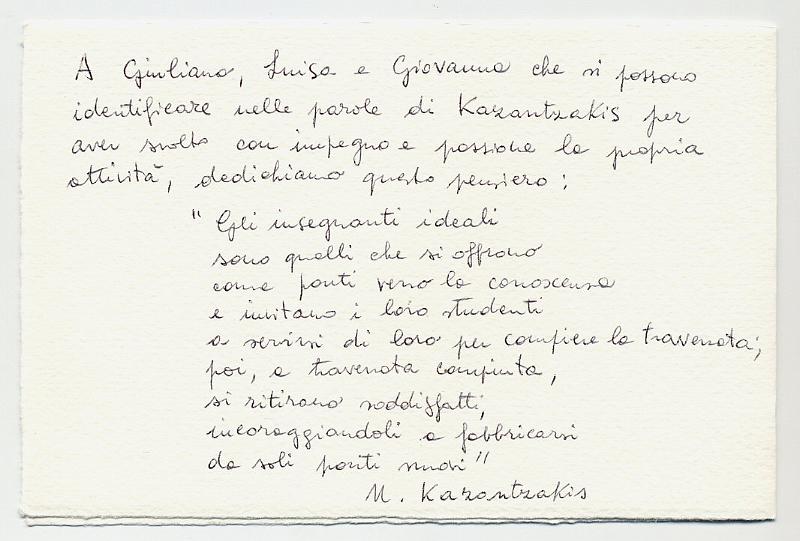 A Giuliano, Luisa e Giovanna che si possono
identificare nelle parole di Kazantzakis per
aver svolto con impegno e passione la propria
attività, dedichiamo questo pensiero:
"Gli insegnanti ideali
sono quelli che si offrono
come ponti verso la conoscenza
e invitano i loro studenti
a servirsi di loro per compiere la traversata;
poi, a traversata compiuta,
si ritirano soddisfatti,
incoraggiandoli a fabbricarsi
da soli ponti nuovi"
N. Kazantzakis